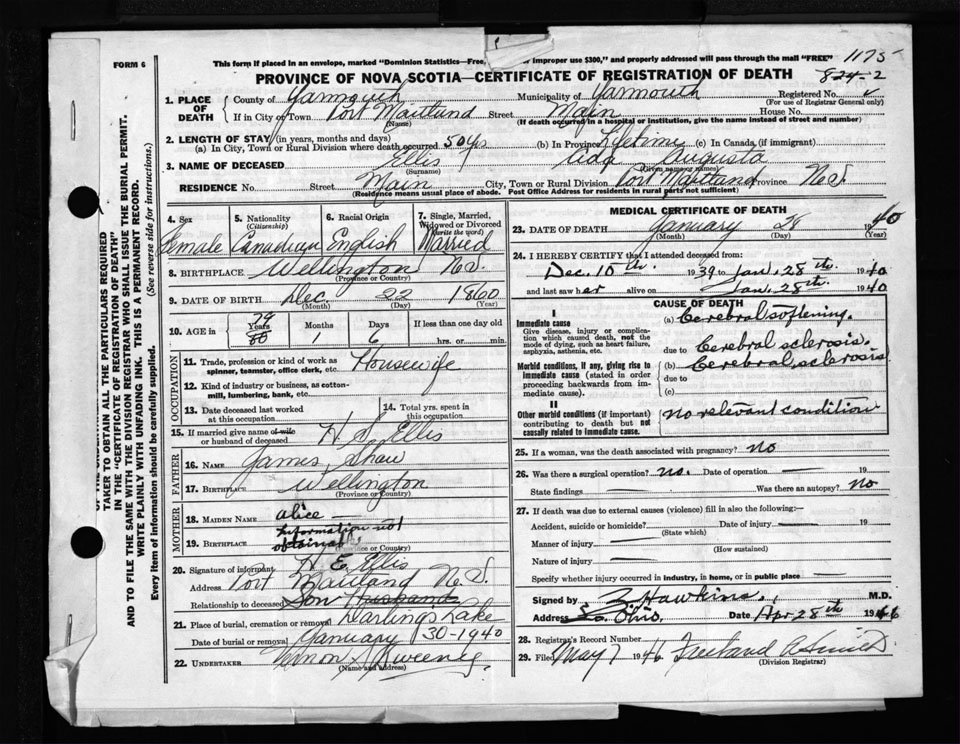 FORM 6
This form if placed in an envelope, marked "Dominion Statistics—Free, improper use $300," and properly addressed will pass through the mail "FREE"
1175
PROVINCE OF NOVA SCOTIA—CERTIFICATE OF REGISTRATION OF DEATH
824-2
1. PLACE OF DEATH County of Yarmouth Municipality of Yarmouth Registered No.
(For use of Registrar General only)
If in City or Town Port Maitland Street Main House No.
(Name) (If death occurred in a hospital or institution, give the name instead of street and number)
2. LENGTH OF STAY (in years, months and days)
(a) In City, Town or Rural Division where death occurred 50 yrs (b) In Province Lifetime (c) In Canada, (if immigrant)
3. NAME OF DECEASED Ellis Ada Augusta
(Surname) (Given name or names)
RESIDENCE No. Street Main City, Town or Rural Division Port Maitland Province N.S.
(Residence means usual place of abode. Post Office Address for residents in rural parts not sufficient)
4. Sex 5. Nationality (Citizenship) 6. Racial Origin 7. Single, Married, Widowed or Divorced (Write the word)
Female Canadian English Married
8. BIRTHPLACE Wellington N.S.
(Province or Country)
9. DATE OF BIRTH Dec. 22 1860
(Month) (Day) (Year)
10. AGE in 79 Years Months Days If less than one day old
80 1 6 hrs. or min.
OCCUPATION
11. Trade, profession or kind of work as spinner, teamster, office clerk, etc. Housewife
12. Kind of industry or business, as cotton-mill, lumbering, bank, etc.
13. Date deceased last worked at this occupation 14. Total yrs. spent in this occupation
15. If married give name of wife or husband of deceased H. S. Ellis
FATHER
16. NAME James Shaw
17. BIRTHPLACE Wellington
(Province or Country)
MOTHER
18. MAIDEN NAME Alice —
Information not
19. BIRTHPLACE obtainable
(Province or Country)
20. Signature of informant H. E. Ellis
Address Port Maitland N.S.
Relationship to deceased Son Husband
21. Place of burial, cremation or removal Darlings Lake
Date of burial or removal January 30-1940
22. UNDERTAKER Vernon Sweeney
(Name and address)
MEDICAL CERTIFICATE OF DEATH
23. DATE OF DEATH January 28 1940
(Month) (Day) (Year)
24. I HEREBY CERTIFY that I attended deceased from:
Dec. 10th. 1939 to Jan. 28th. 1940
and last saw her alive on Jan. 28th. 1940
CAUSE OF DEATH
I
Immediate cause (a) Cerebral softening.
Give disease, injury or complication which caused death, not the mode of dying, such as heart failure, asphyxia, asthenia, etc.
due to Cerebral sclerosis
Morbid conditions, if any, giving rise to immediate cause (stated in order proceeding backwards from immediate cause). (b) Cerebral sclerosis
due to
(c)
II
Other morbid conditions (if important) contributing to death but not causally related to immediate cause. No relevant condition
25. If a woman, was the death associated with pregnancy? No
26. Was there a surgical operation? no. Date of operation — 19
State findings — Was there an autopsy? No
27. If death was due to external causes (violence) fill in also the following:—
Accident, suicide or homicide? — Date of injury — 19
(State which)
Manner of injury —
(How sustained)
Nature of injury —
Specify whether injury occurred in industry, in home, or in public place —
Signed by Z Hawkins.
Address So. Ohio. Date Apr. 28th 1946
28. Registrar's Record Number
29. Filed May 7 1946
(Division Registrar)
TAKER TO OBTAIN ALL THE PARTICULARS REQUIRED
IN THE "CERTIFICATE OF REGISTRATION OF DEATH"
AND TO FILE THE SAME WITH THE DIVISION REGISTRAR WHO SHALL ISSUE THE BURIAL PERMIT.
WRITE PLAINLY WITH UNFADING INK. THIS IS A PERMANENT RECORD.
Every item of information should be carefully supplied. (See reverse side for instructions.)